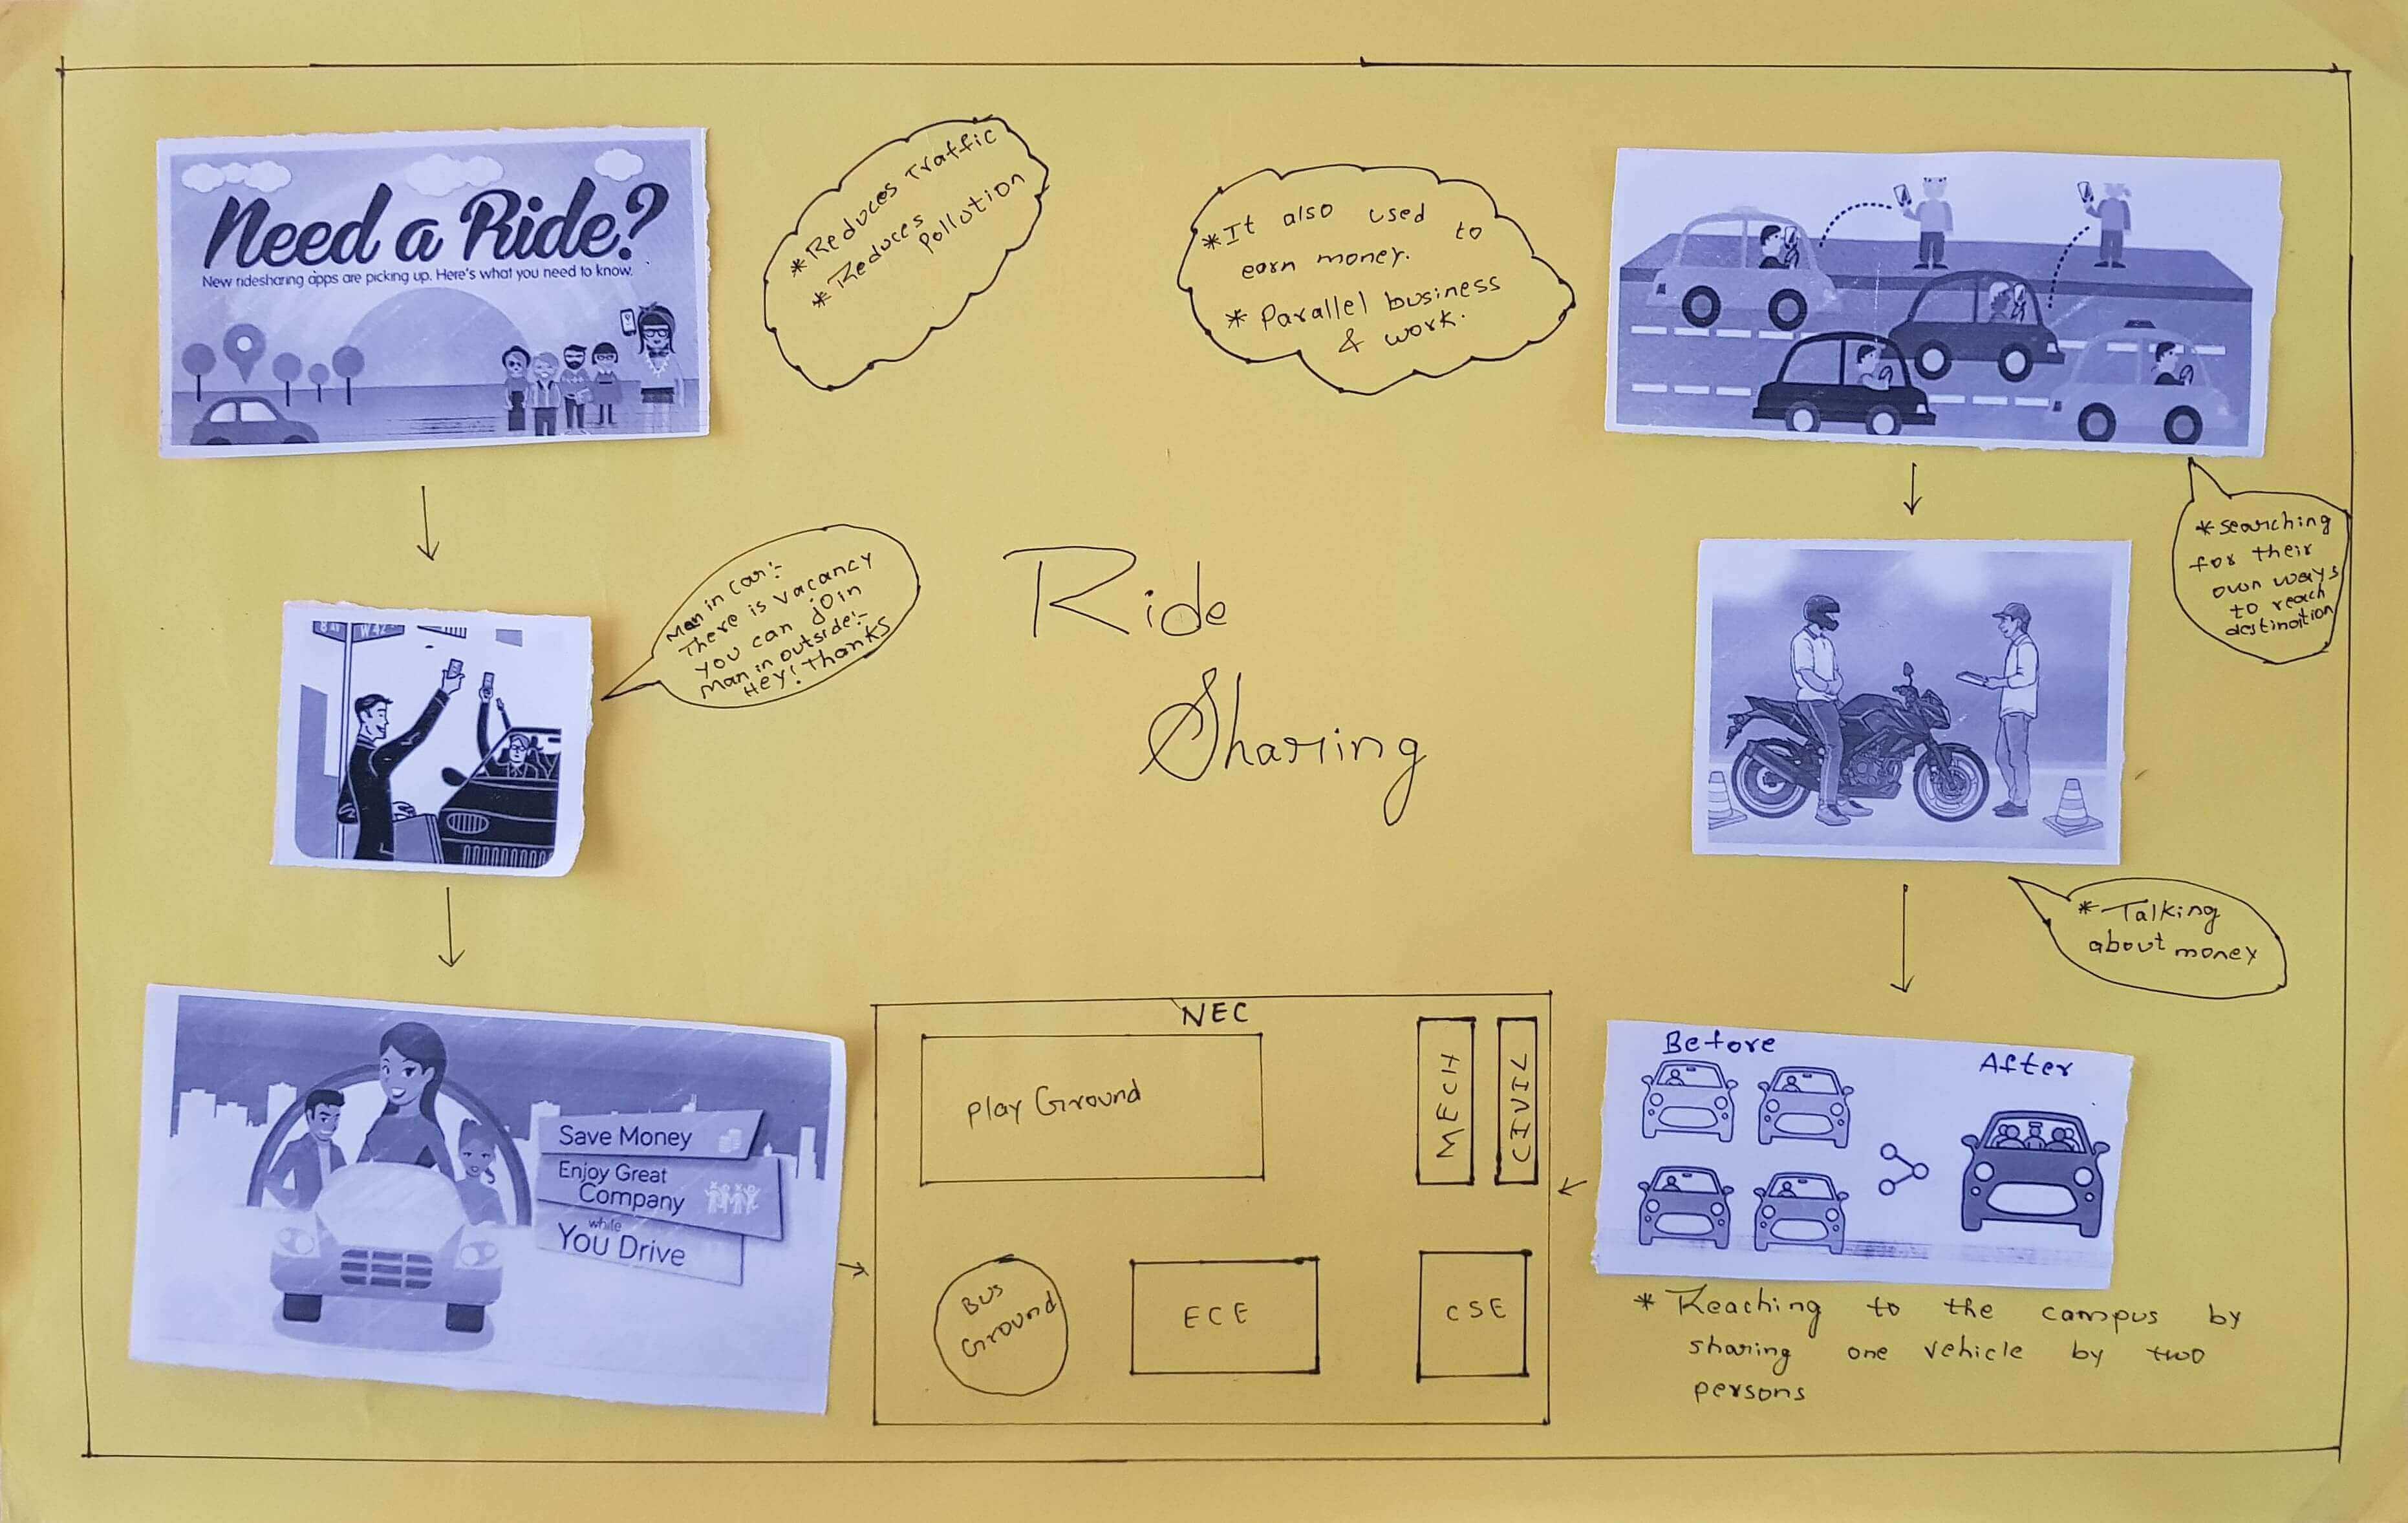 Need a Ride?
New ridesharing apps are picking up. Here's what you need to know.
* Reduces Traffic
* Reduces
Pollution
* It also used to
earn money.
* Parallel business
& work.
* searching
for their
own ways
to reach
destination
Man in car:-
There is vacancy
you can join
man in outside:-
Hey! Thanks
Ride
Sharing
8 AV
W 42
* Talking
about money
Save Money
Enjoy Great
Company
while
You Drive
NEC
Play Ground
MECH
CIVIL
Bus
Ground
ECE
CSE
Before
After
* Reaching to the campus by
sharing one vehicle by two
persons